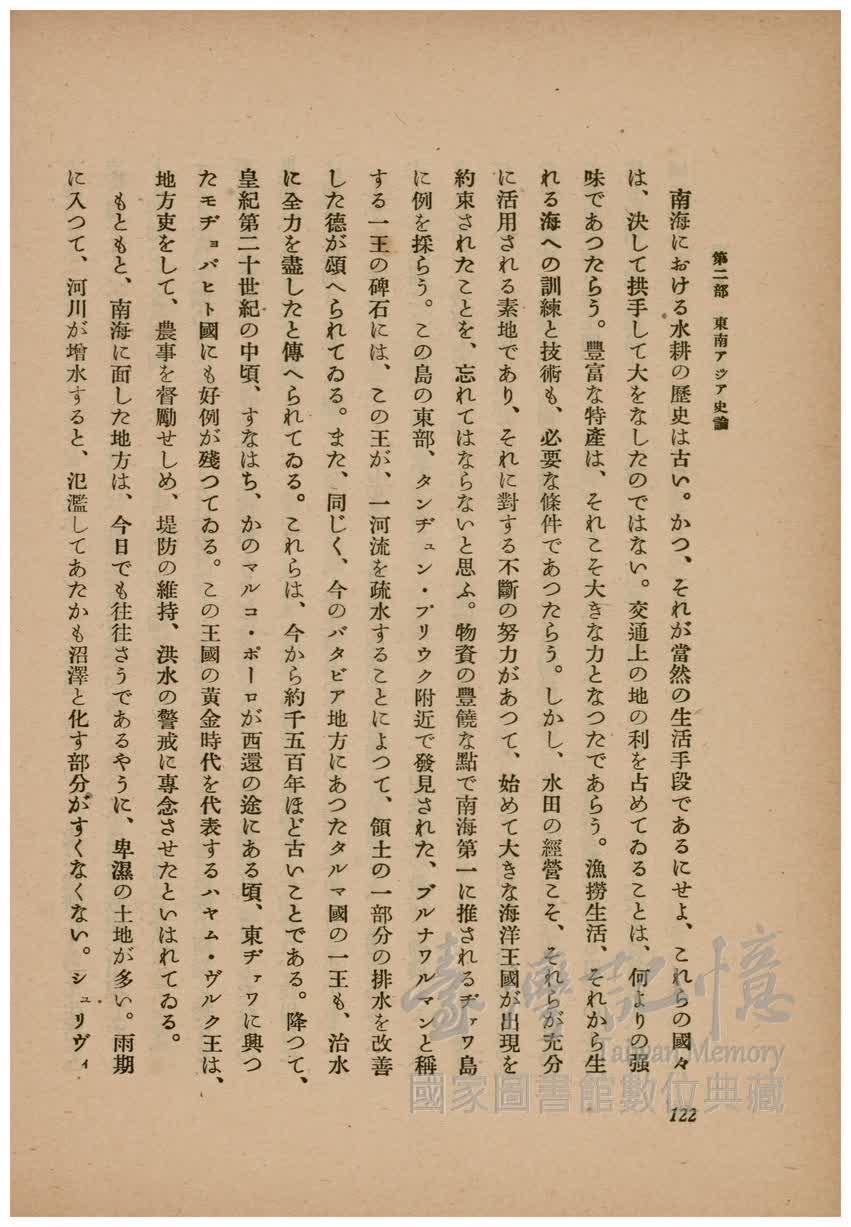 第二部　東南アジア史論
　南海における水耕の歴史は古い。かつ、それが當然の生活手段であるにせよ、これらの國々
は、決して拱手して大をなしたのではない。交通上の地の利を占めてゐることは、何よりの强
味であつたらう。豐富な特產は、それこそ大きな力となつたであらう。漁撈生活、それから生
れる海への訓練と技術も、必要な條件であつたらう。しかし、水田の經營こそ、それらが充分
に活用される素地であり、それに對する不斷の努力があつて、始めて大きな海洋王國が出現を
約束されたことを、忘れてはならないと思ふ。物資の豐饒な點で南海第一に推されるヂァワ島
に例を採らう。この島の東部、タンヂュン・プリウク附近で發見された、プルナワルマンと稱
する一王の碑石には、この王が、一河流を疏水することによつて、領土の一部分の排水を改善
した德が頌へられてゐる。また、同じく、今のバタビア地方にあつたタルマ國の一王も、治水
に全力を盡したと傳へられてゐる。これらは、今から約千五百年ほど古いことである。降つて、
皇紀第二十世紀の中頃、すなはち、かのマルコ・ポーロが西還の途にある頃、東ヂァワに興つ
たモヂョパヒト國にも好例が殘つてゐる。この王國の黃金時代を代表するハヤム・ヴルク王は、
地方吏をして、農事を督勵せしめ、堤防の維持、洪水の警戒に專念させたといはれてゐる。
　もともと、南海に面した地方は、今日でも往往さうであるやうに、卑濕の土地が多い。雨期
に入つて、河川が增水すると、氾濫してあたかも沼澤と化す部分がすくなくない。シュリヴィ
122
臺灣記憶
Taiwan Memory
國家圖書館數位典藏